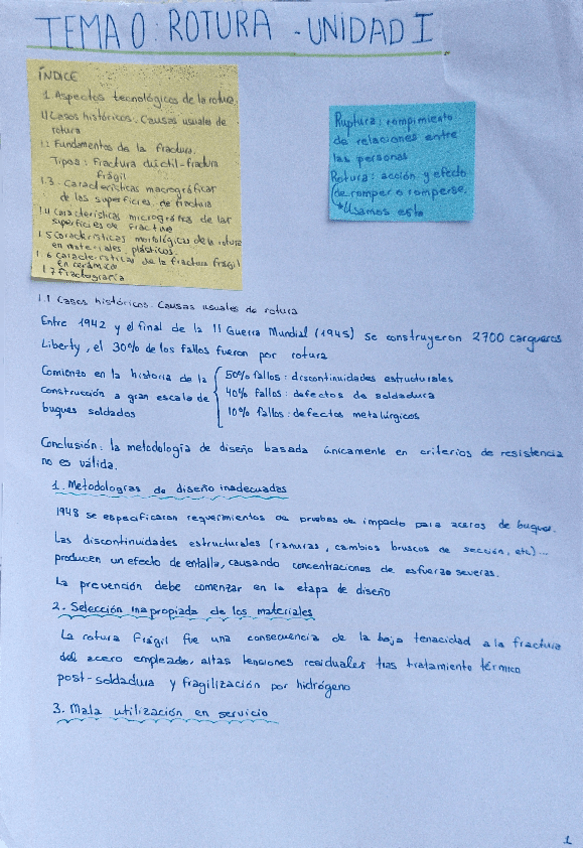 TEMA 0: ROTURA - UNIDAD I
ÍNDICE
1 Aspectos tecnológicos de la rotura.
1.1 Casos históricos. Causas usuales de
rotura
1.2 Fundamentos de la fractura.
Tipos: Fractura dúctil-fractura
frágil
1.3 - Características macrográficas
de las superficies de fractura
1.4 Características micrográficas de las
superficies de fractura
1.5 Características morfológicas de la rotura
en materiales plásticos.
1.6 características de la fractura frágil
en cerámicos
1.7 Fractografía
Ruptura: rompimiento
de relaciones entre
las personas
Rotura: acción y efecto
de romper o romperse.
*Usamos esta
1.1 Casos históricos. Causas usuales de rotura
Entre 1942 y el final de la II Guerra Mundial (1945) se construyeron 2700 cargueros
Liberty, el 30% de los fallos fueron por rotura
Comienzo en la historia de la
construcción a gran escala de
buques soldados
50% fallos: discontinuidades estructurales
40% fallos: defectos de soldadura
10% fallos: defectos metalúrgicos
Conclusión: la metodología de diseño basada únicamente en criterios de resistencia
no es válida.
1. Metodologías de diseño inadecuadas
1948 se especificaron requerimientos de pruebas de impacto para aceros de buques.
Las discontinuidades estructurales (ranuras, cambios bruscos de sección, etc)...
producen un efecto de entalla, causando concentraciones de esfuerzo severas.
La prevención debe comenzar en la etapa de diseño
2. Selección inapropiada de los materiales
La rotura frágil fue una consecuencia de la baja tenacidad a la fractura
del acero empleado, altas tensiones residuales tras tratamiento térmico
post-soldadura y fragilización por hidrógeno
3. Mala utilización en servicio
1